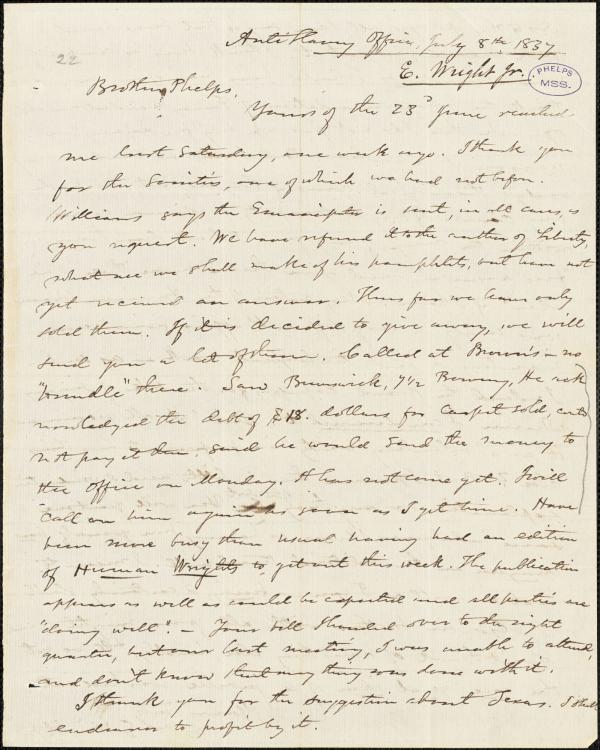 22
Anti Slavery Office, July 8th, 1837
E. Wright Jr.
PHELPS
MSS.
Brother Phelps,
Yours of the 23d June reached
me last Saturday, one week ago. I thank you
for the , one of which we had not before.
Williams says the Emancipator is sent, in all cases, as
you request. We have referred it to the author of "Liberty,
what use we shall make of his pamphlets, but have not
yet received an answer. Thus far we have only
sold them. If it is decided to give away, we will
send you a lot of them. Called at Brown's — no
"bundle" there. Saw Brunswick, 7½ Bowery, He ack
nowledged the debt of 18. dollars for carpet sold, could
not pay it then, said he would send the money to
the office on Monday. It has not come yet. I will
call on him again as soon as I get time. Have
been more busy than usual having had an edition
of Human Wrights to get out this week. The publication
appears as well as could be expected and all parties are
"doing well". — Your bill I handed over to the right
quarter, but our last meeting, I was unable to attend,
and don't know that any thing was done with it.
I thank you for the suggestion about Texas. I shall
endeavor to profit by it.